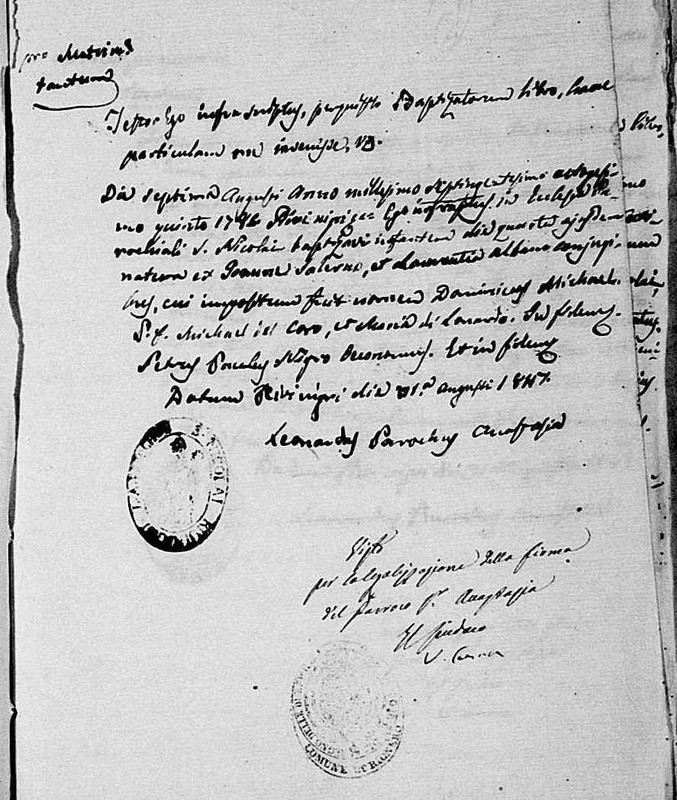 pro Matrim.o
tantum
Testor Ego infrascriptus, perquisito Baptizatorum libro, hanc
particulam me invenisse, V3.
Die septima Augusti Anno millesimo septingentesimo
mo quinto 17 Rivi nigri = Ego infraptus in Ecclesia Pa-
rochiali S. Nicolai baptizavi infantem die quarta ejusdem
natum ex Joanne Salerno, et Laurentia Albano conjugi-
bus, cui impositum fuit nomen Dominicus Michael.
P.f. Michael del Coro, et Maria di Lonardo. In fidem
Petrus Paulus Nigro Oeconomus. Et in fidem
Datum Rivi nigri die 21.a Augusti 1817.
Leonardus Parochus Anastasia
libro,
S. NICOLAI RIVI NIGRI
Visto
per la legalizzazione della firma
del Parroco Sr. Anastasia
Il Sindaco
COMUNE DI RAGNARO